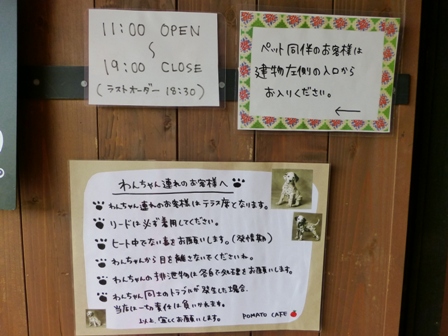 11:00 OPEN
〜
19:00 CLOSE
(ラストオーダー 18:30)
ペット同伴のお客様は
建物左側の入口から
お入りください。
←
わんちゃん連れのお客様へ
わんちゃん連れのお客様はテラス席となります。
リードは必ず着用してください。
ヒート中でない事をお願いします。(発情期)
わんちゃんから目を離さないでくださいね。
わんちゃんの排泄物は各自で処理をお願いします。
わんちゃん同士のトラブルが発生した場合、
当店は一切責任は負いかねます。
以上、宜しくお願いします。
POMATO CAFE